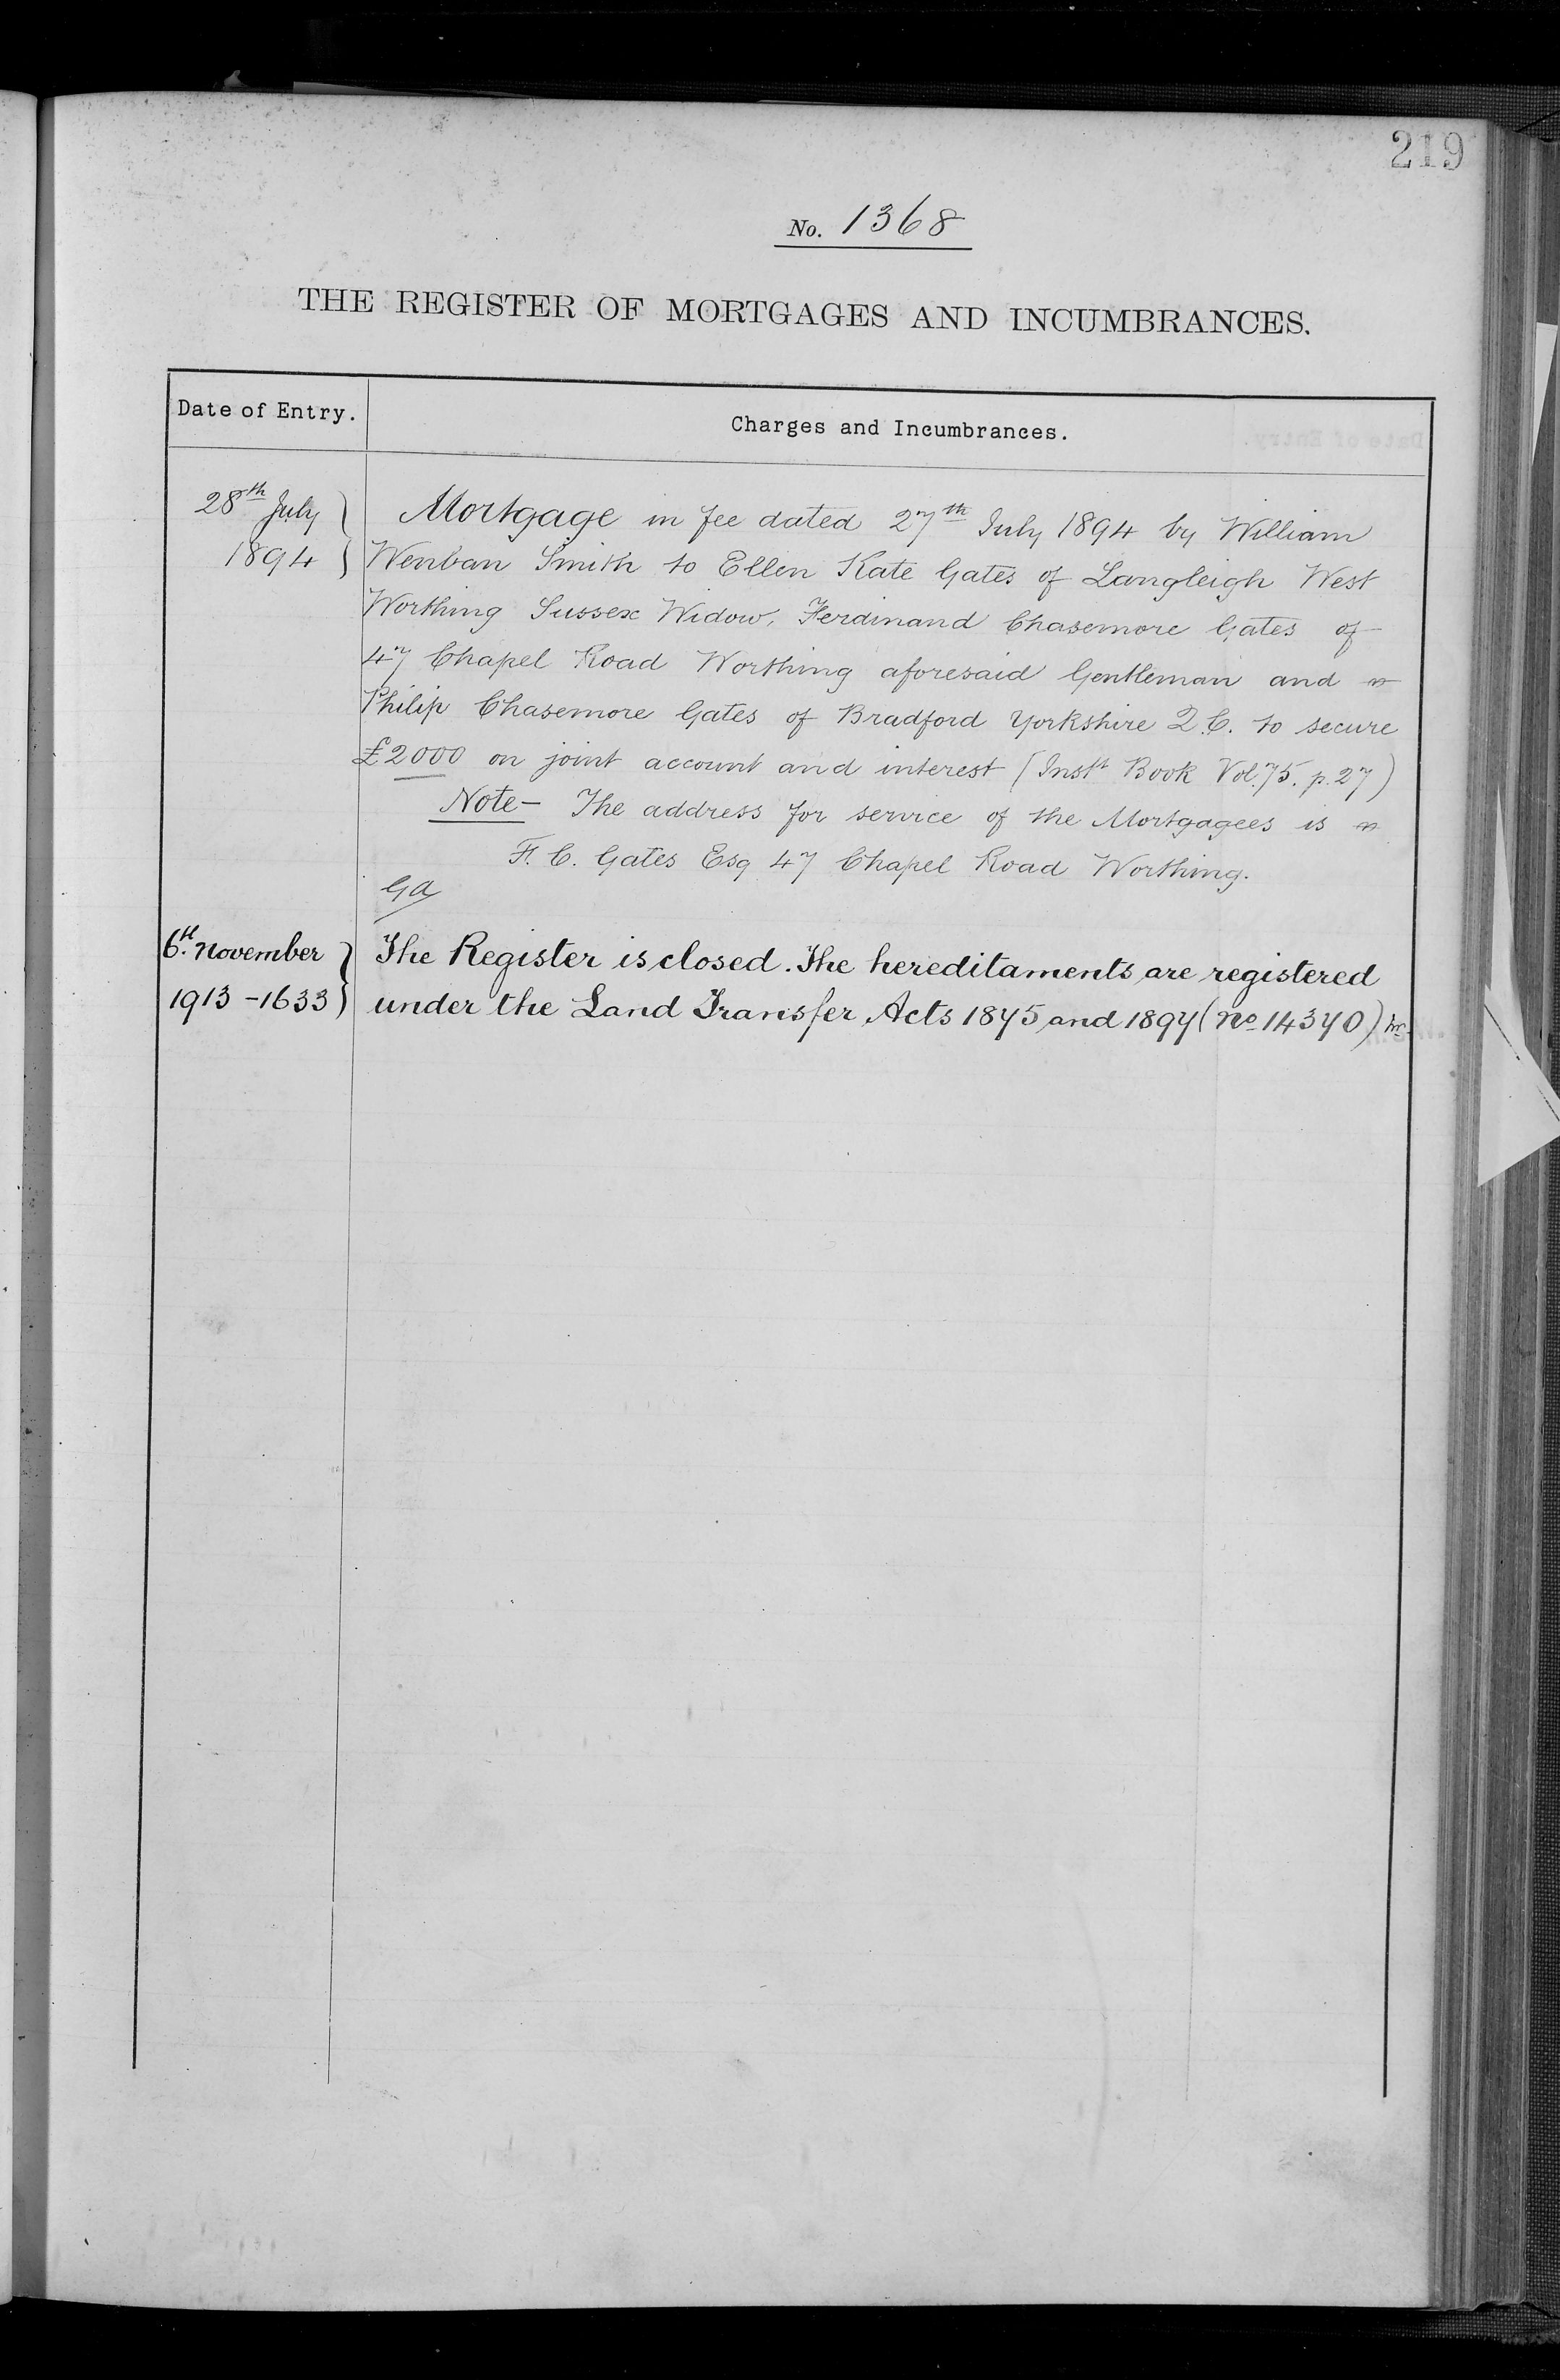 219
No. 1368
THE REGISTER OF MORTGAGES AND INCUMBRANCES.
Date of Entry.
Charges and Incumbrances.
28th July
1894
Mortgage in fee dated 27th July 1894 by William
Wenban Smith to Ellen Kate Gates of Langleigh West
Worthing Sussex Widow, Ferdinand Chasemore Gates of
47 Chapel Road Worthing aforesaid Gentleman and
Philip Chasemore Gates of Bradford Yorkshire Q.C. to secure
£2000 on joint account and interest (Inst Book Vol. 75. p. 27)
Note – The address for service of the Mortgagees is
F. C. Gates Esq 47 Chapel Road Worthing.
GA
6th November
1913 – 1633
The Register is closed. The hereditaments are registered
under the Land Transfer Acts 1875 and 1897 (No 14370)